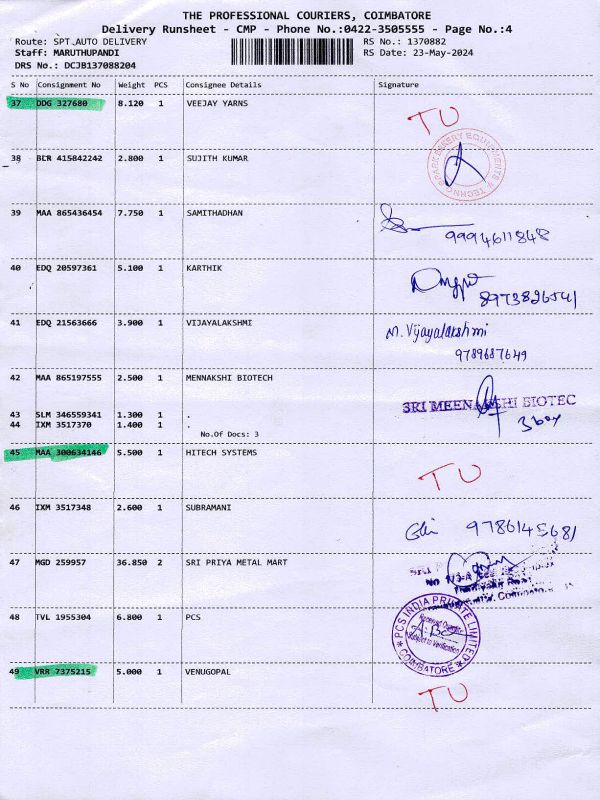 THE PROFESSIONAL COURIERS, COIMBATORE
Delivery Runsheet - CMP - Phone No.:0422-3505555 - Page No.:4
Route: SPT AUTO DELIVERY RS No.: 1370882
Staff: MARUTHUPANDI RS Date: 23-May-2024
DRS No.: DCJB137088204
S No Consignment No Weight PCS Consignee Details Signature
37 DDG 327680 8.120 1 VEEJAY YARNS TU
38 BLR 415842242 2.800 1 SUJITH KUMAR
39 MAA 865436454 7.750 1 SAMITHADHAN
9994611848
40 EDQ 20597361 5.100 1 KARTHIK
8973826541
41 EDQ 21563666 3.900 1 VIJAYALAKSHMI M. Vijayalakshmi
9789687649
42 MAA 865197555 2.500 1 MENNAKSHI BIOTECH
SRI MEENAKSHI BIOTEC
43 SLM 346559341 1.300 1 .
44 IXM 3517370 1.400 1 . 3 box
No.Of Docs: 3
45 MAA 300634146 5.500 1 HITECH SYSTEMS TU
46 IXM 3517348 2.600 1 SUBRAMANI
9786145681
47 MGD 259957 36.850 2 SRI PRIYA METAL MART
48 TVL 1955304 6.800 1 PCS
PCS INDIA PRIVATE LIMITED
Subject to Verification
COIMBATORE
49 VRR 7375215 5.000 1 VENUGOPAL TU